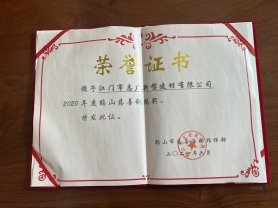 荣誉证书
授予江门市志广新型建材有限公司
2020年度鹤山慈善
奖。
特发此证。
鹤山市慈善会
二〇二一年六月